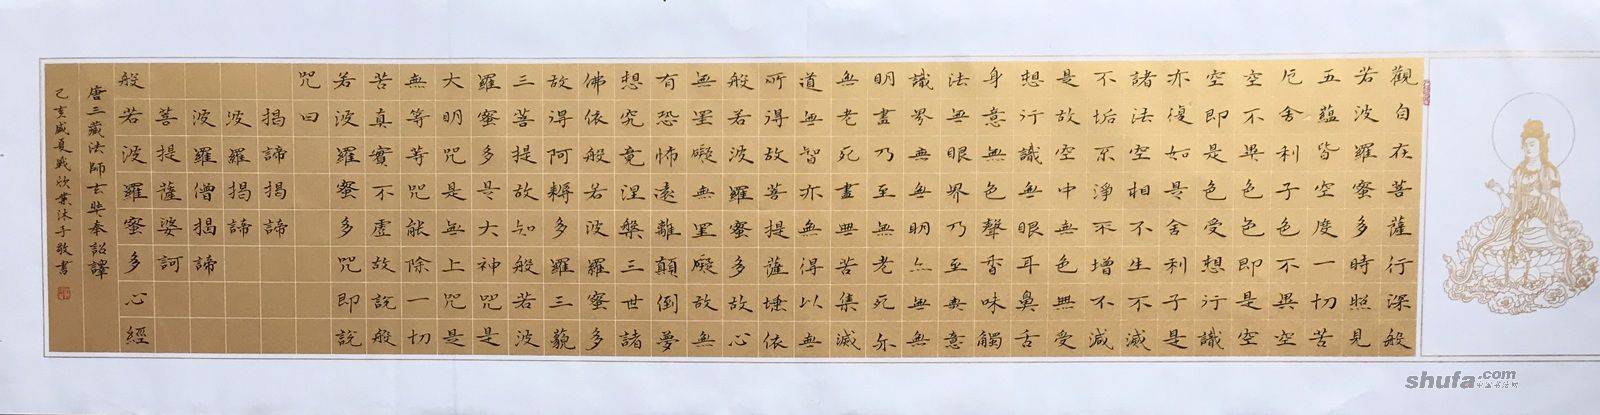 觀自在菩薩行深般
若波羅蜜多時照見
五蘊皆空度一切苦
厄舍利子色不異空
空不異色色即是空
空即是色受想行識
亦復如是舍利子是
諸法空相不生不滅
不垢不淨不增不減
是故空中無色無受
想行識無眼耳鼻舌
身意無色聲香味觸
法無眼界乃至無意
識界無無明亦無無
明盡乃至無老死亦
無老死盡無苦集滅
道無智亦無得以無
所得故菩提薩埵依
般若波羅蜜多故心
無罣礙無罣礙故無
有恐怖遠離顛倒夢
想究竟涅槃三世諸
佛依般若波羅蜜多
故得阿耨多羅三藐
三菩提故知般若波
羅蜜多是大神咒是
大明咒是無上咒是
無等等咒能除一切
苦真實不虛故說般
若波羅蜜多咒即說
咒曰
揭諦揭諦
波羅揭諦
波羅僧揭諦
菩提薩婆訶
般若波羅蜜多心經
唐三藏法師玄奘奉詔譯
己亥盛夏戰欣業沐手敬書
shufa.com
中国书法网